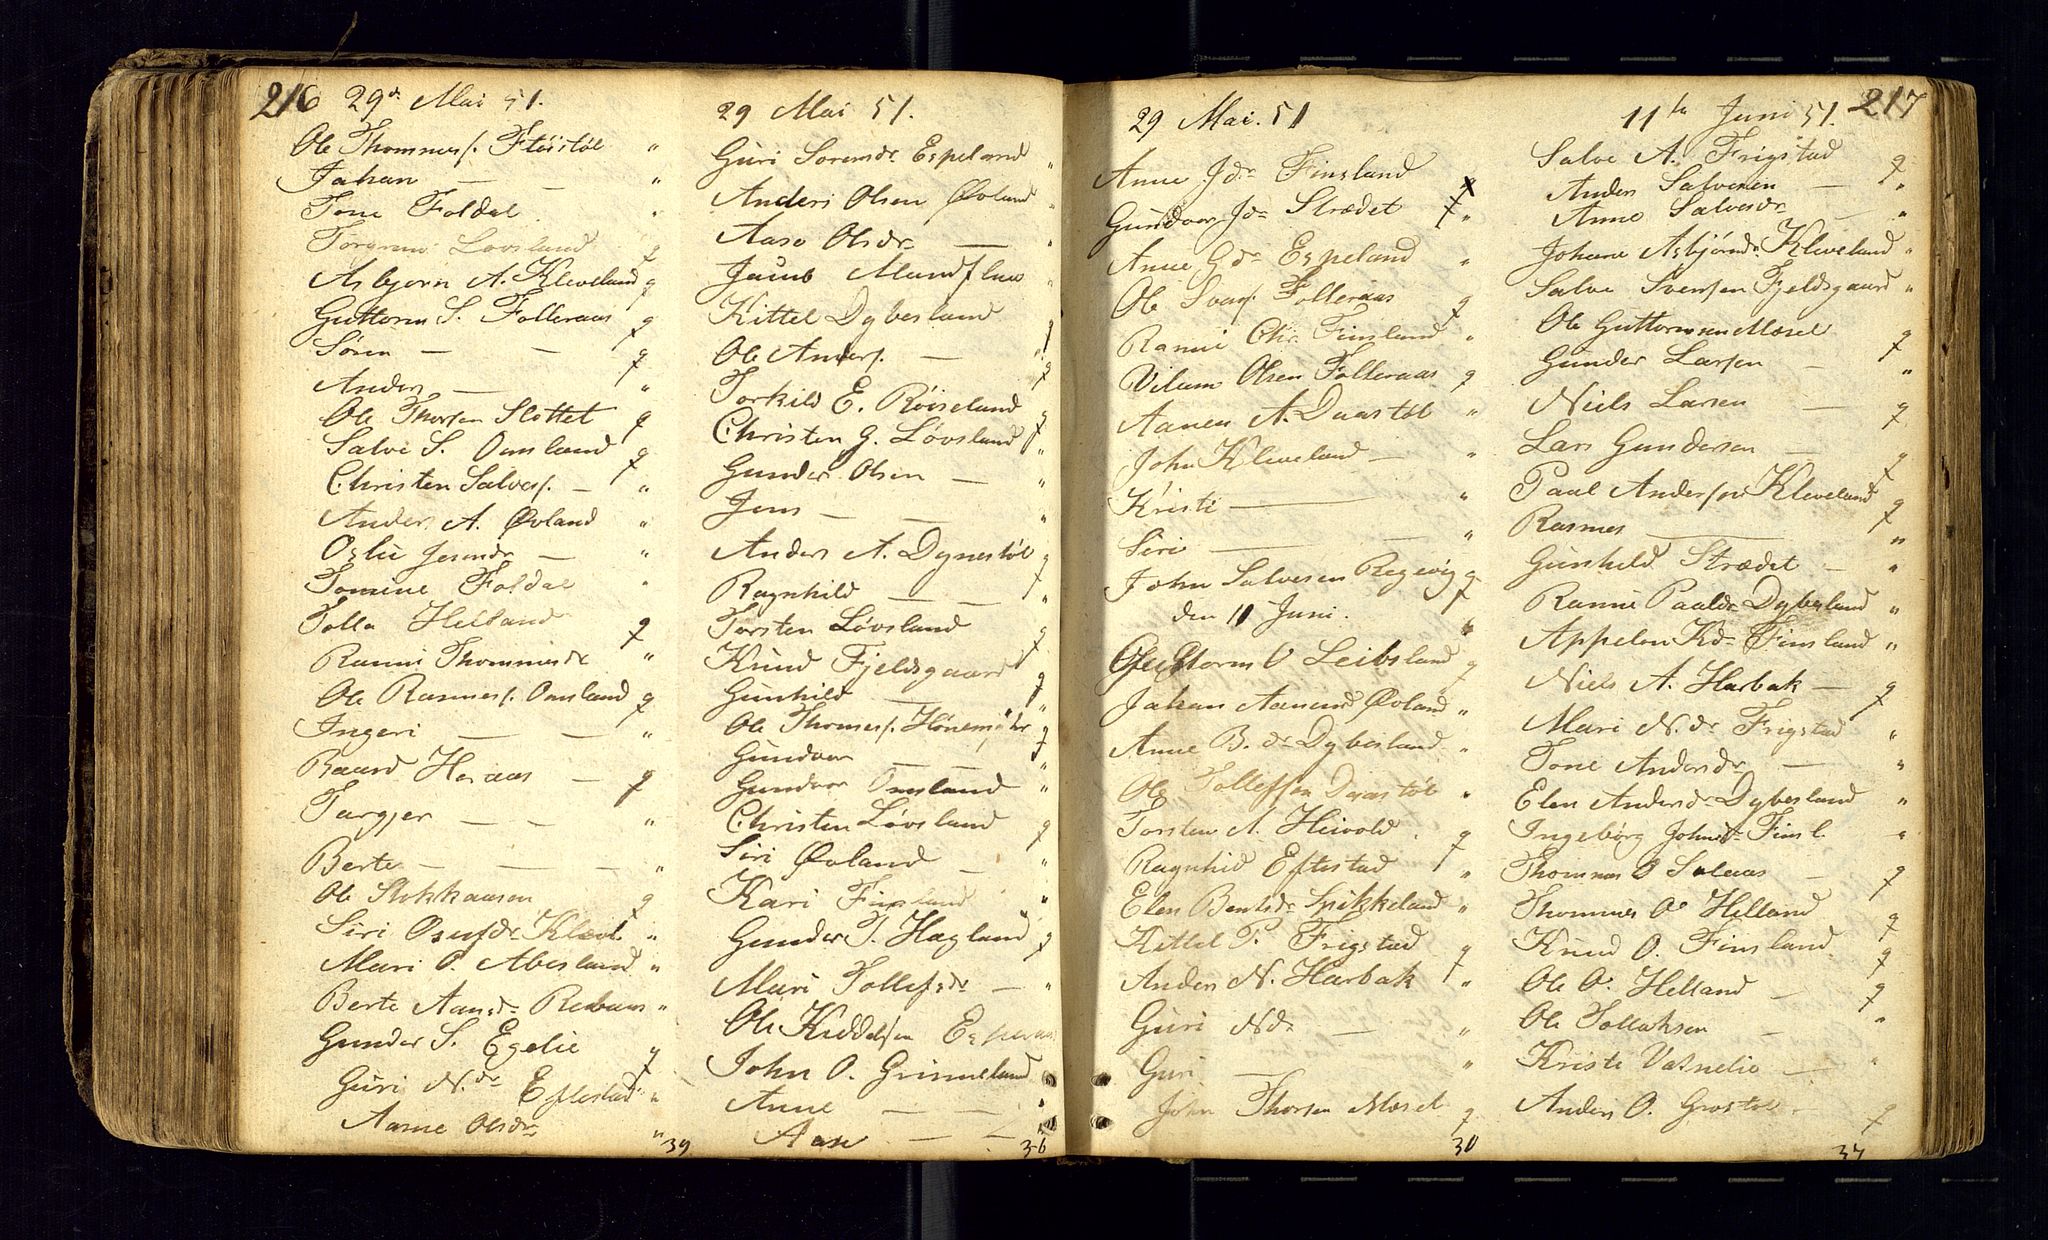 216 29de Mai 51.
Ole Thommess. Fløistøl "
Johan — — "
Tone Foldal "
Torgrim Løvsland g
Asbjørn A. Kleveland g
Guttorm S. Folleraas g
Søren — — g
Anders — "
Ole Thorsen Slottet g
Salve S. Omland g
Christen Salves. — "
Anders A. Øvland "
Oslu Jensdr — "
Tomine Foldal "
Tolla Helland g
Ranni Thommesdr "
Ole Rasmuss. Omsland g
Ingeri — — "
Baard Heraas — g
Targjer — — "
Berte — — — "
Ole Stokkaasen g
Siri Osufsdr Klevl. "
Mari O. Abesland "
Berte Aansdr Rebaas "
Gunder S. Egelie g
Guri N.dr Eftestad "
Aanne Olsdr "
39
29 Mai 51.
Guri Sorensdr Espeland "
Anders Olsen Øvland "
Aase Olsdr — "
Jacob Mandflua "
Kittel Dybesland g
Ole Anders. — g
Torkild E. Røiseland g
Christen G. Løvsland "
Gunder Olsen — "
Jens — — "
Anders A. Dynestøl g
Ragnhild — — "
Torsten Løvsland g
Knud Fjeldsgaard g
Gunhild — "
Ole Thomess. Hønemyhr g
Gundvor — — "
Gundvor Omsland "
Christen Løvsland g
Siri Øvland — "
Kari Finsland "
Gunder T. Hagland g
Mari Tollefsdr — "
Ole Kiddelsen
John O. Grimeland
Anne — — "
Aase — — "
36
29 Mai. 51
Anne Jdr Finsland
Gundvor Jdr Strædet "
Anne Gdr Espeland "
Ole Svens. Folleraas g
Ranni Chr. Finsland "
Vilum Olsen Folleraas g
Aanen A. Daastøl "
John Kleveland — "
Kristi — "
Siri — — "
John Salvesen Regevig g
den 11 Juni.
Guttorm O Leibsland g
Johan Aanens Øvland "
Anne B.dr Dybesland "
Ole Tollefsen Daastøl "
Torsten A. Heivold g
Ragnhild Eftestad "
Elen Bentsdr Spikkeland "
Kittel T. Frigstad g
Anders N. Harbak "
Guri Ndr — "
Guri — "
John Thorsen Mosel g
30
11te Juni 51. 217
Salve A. Frigstad g
Anders Salvesen — "
Anne Salvesdr — "
Johane Asbjørnsdr Kleveland "
Salve Svensen Fjeldsgaard "
Ole Guttormsen Mosel g
Gunder Larsen — "
Niels Larsen — g
Lars Gundersen — "
Paul Andersen Kleveland g
Rasmus — "
Gunhild Strædet — "
Ranni Paalsdr Dybesland "
Appelon Kdr Finsland "
Niels A. Harbak — g
Mari N.dr Frigstad "
Tone Andersdr — "
Elen Andersdr Dybesland "
Ingebørg Johnsdr Finsl. "
Thommas O Solaas — g
Thommes O. Helland g
Knud O. Finsland g
Ole O. Helland — g
Ole Tollaksen — "
Kristi Vatnelie — "
Anders O. Grostøl g